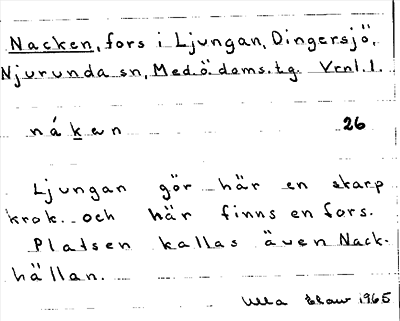 Nacken, fors i Ljungan, Dingersjö,
Njurunda sn, Med.ö. doms.tg. Vrnl.l.
nákan 26
Ljungan gör här en skarp
krok och här finns en fors.
Platsen kallas även Nack-
hällan.
Ulla 1965